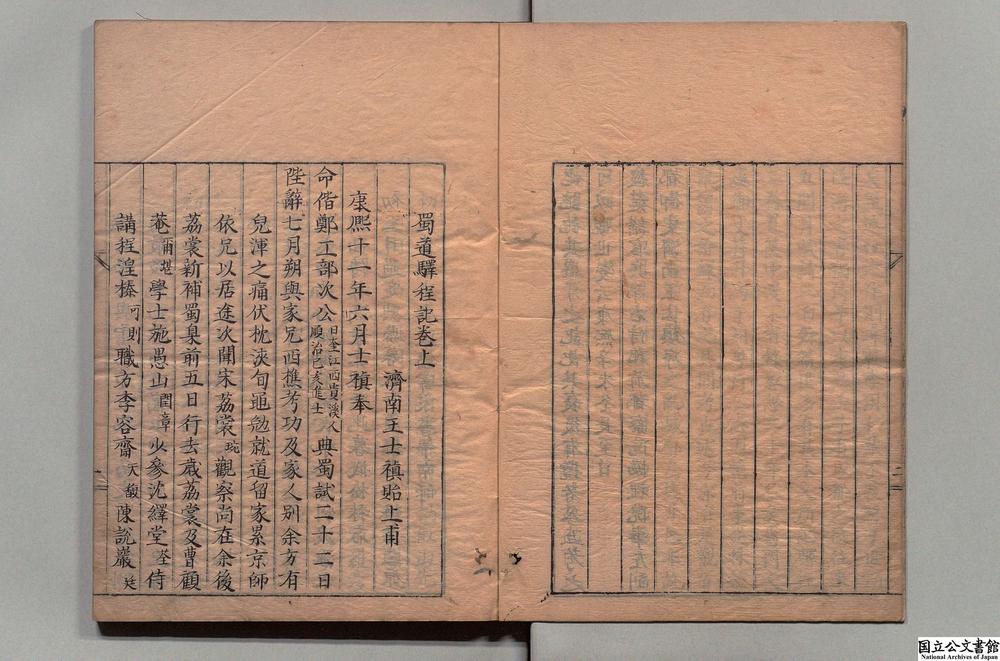 蜀道驛程記卷上
濟南王士禛貽上甫
康熙十一年六月士禛奉
命偕鄭工部次公日奎江西貴溪人順治己亥進士典蜀試二十二日
陛辭七月朔與家兄西樵考功及家人別余方有
兒渾之痛伏枕浹旬黽勉就道留家累京師
依兄以居途次聞宋荔裳琬觀察尚在余後
荔裳新補蜀臬前五日行去歳荔裳及曹顧
菴爾堪學士施愚山閏章少參沈繹堂荃侍
講程湟榛可則職方李容齋天馥陳說巖廷
二
一
国立公文書館
National Archives of Japan